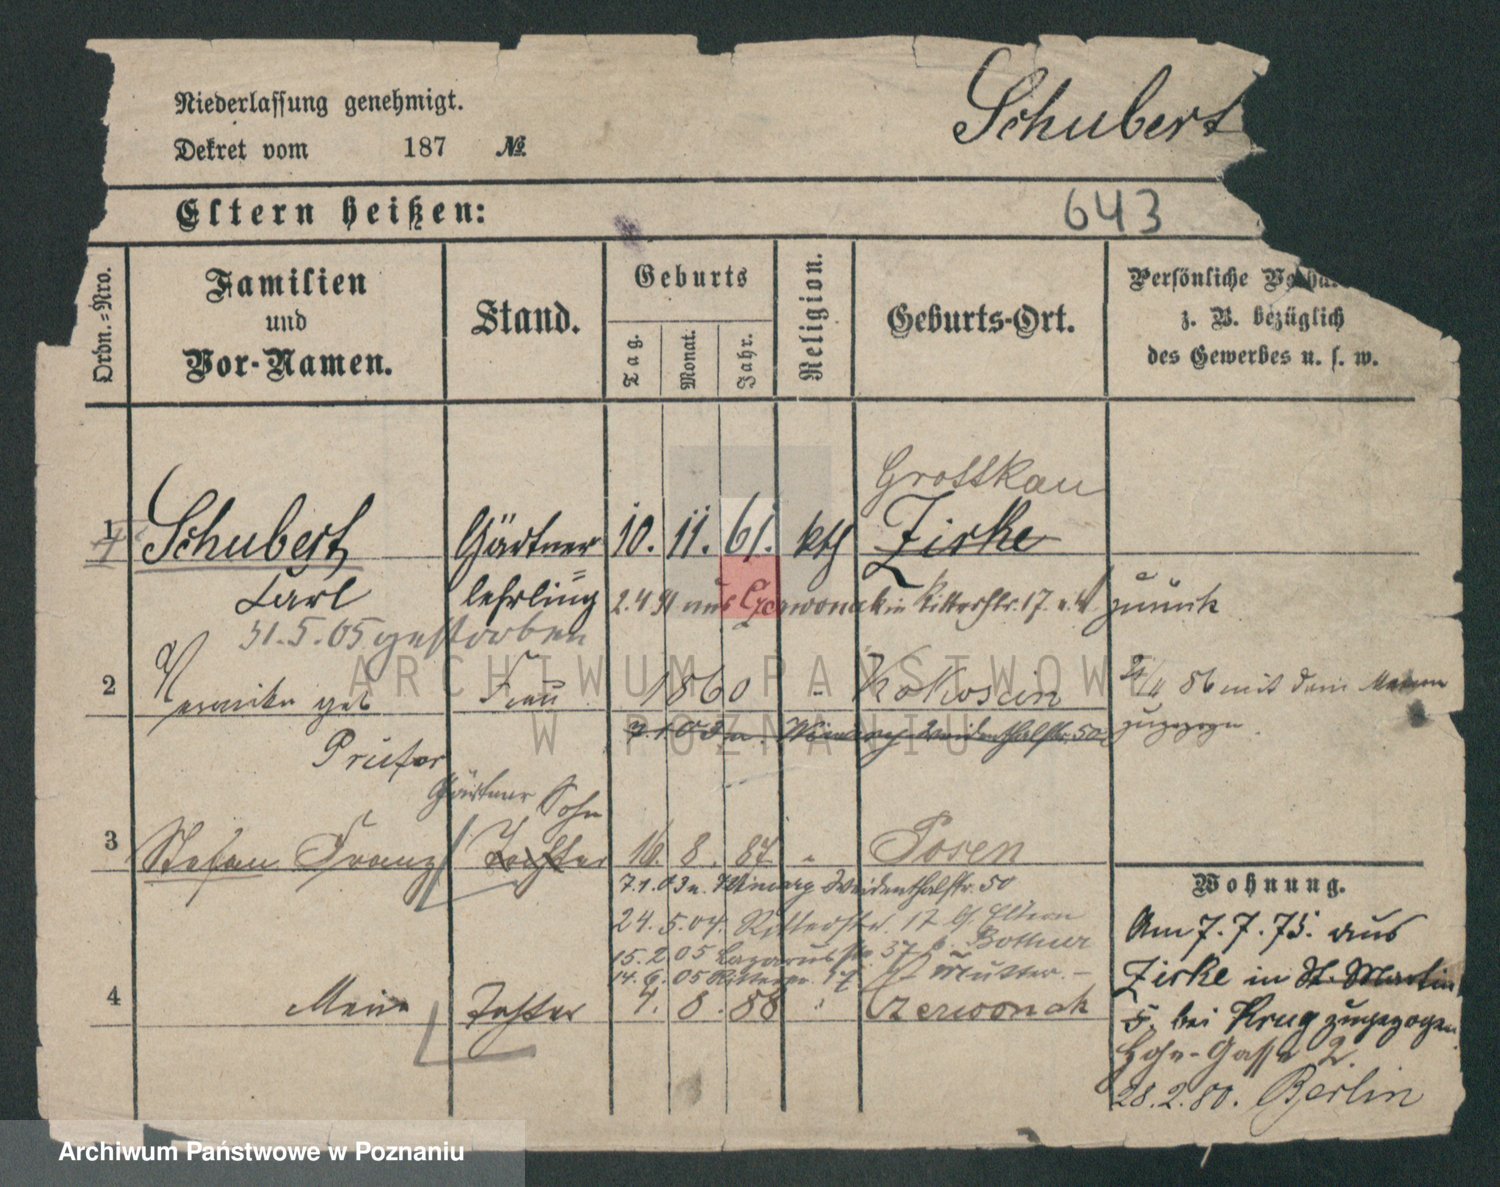 Niederlassung genehmigt.
Schubert
Dekret vom 187 №
Eltern heißen:
643
Ordn.=Nro.
Familien
und
Vor-Namen.
Stand.
Geburts
Tag.
Monat.
Jahr.
Religion.
Geburts-Ort.
Persönliche
z. B. bezüglich
des Gewerbes u. s. w.
Grosskau
1 Schubert Gärtner 10. 11. 61. kth Zirke
Carl lehrling 2.4 91 aus Czerwonak in Ritterstr. 17. zurück
31.5.05 gestorben
2 geb Frau 1860 " Kokoscin 86 mit dem
7.1.03 Weidenthalstr. 50 zugezogen
Prüfer
Gärtner Sohn
3 Stefan Franz Tochter 16. 8. 87 " Posen
7.1.03 n. Winiary Weidenthalstr. 50
24.5.04. Ritterstr. 17 b. Eltern
15.2.05 Lazarusstr 37 b. Bottner
14.6.05 Ritterstr. 17 Mutter. –
4 Tochter 4. 8. 88 " Czerwonak
Wohnung.
Am 7.7.75. aus
Zirke in St. Martin
5. bei Krug zugezogen
Gasse 2.
28.2.80. Berlin
ARCHIWUM PAŃSTWOWE
W POZNANIU
Archiwum Państwowe w Poznaniu